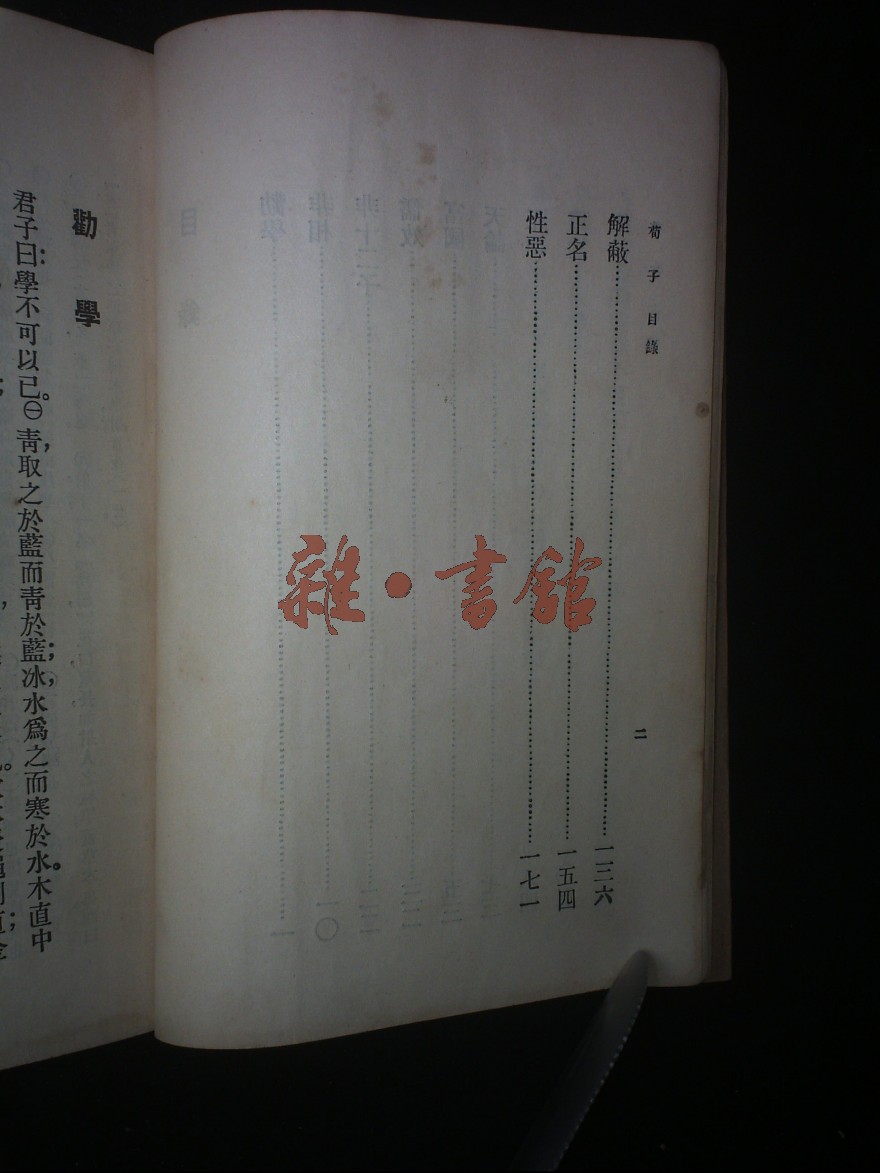 荀子目錄
二
解蔽……一三六
正名……一五四
性惡……一七一
勸學
君子曰：學不可以已。㊀靑，取之於藍而靑於藍；冰，水爲之而寒於水。木直中
雜·書館